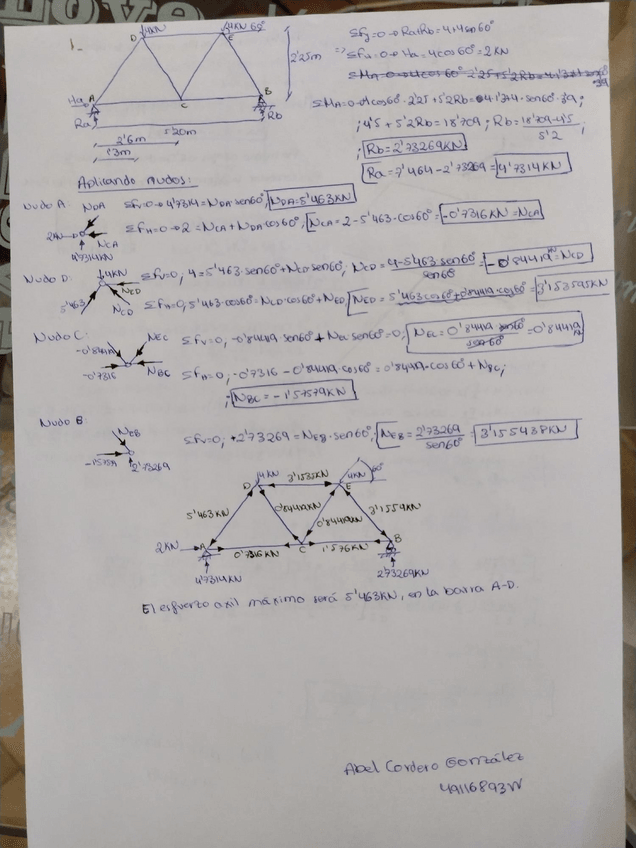 1.
4KN
4KN 60º
D
E
2'25m
Ha
A
C
B
Ra
Rb
5'20m
2'6m
1'3m
Σfy=0 → Ra+Rb = 4+4sen60º
Σfh=0 → Ha = 4cos60º = 2KN
ΣMa=0 → -4cos60º·2'25+5'2Rb=4·1'3+4·sen60º·3'9;
; 4'5+5'2Rb = 18'709; Rb = 18'709-4'5 / 5'2 ;
; Rb = 2'73269KN
Ra = 7'464-2'73269 = 4'7314KN
Aplicando nudos:
Nudo A:
NDA
2KN
NCA
4'7314KN
Σfv=0 → 4'7314 = NDA·sen60º; NDA = 5'463KN
Σfh=0 → 2 = NCA + NDA cos60º; NCA = 2-5'463·cos60º = -0'7316KN = NCA
Nudo D:
4KN
NED
5'463
NCD
Σfv=0; 4 = 5'463·sen60º + NCD·sen60º; NCD = 4-5'463·sen60º / sen60º = -0'84419KN = NCD
Σfh=0; 5'463·cos60º = NCD·cos60º + NED; NED = 5'463cos60º+0'84419·cos60º = 3'153595KN
Nudo C:
-0'84419
NEC
-0'7316
NBC
Σfv=0; -0'84419 sen60º + NEC·sen60º = 0; NEC = 0'84419 sen60º / sen60º = 0'84419KN
Σfh=0; -0'7316-0'84419·cos60º = 0'84419·cos60º + NBC;
; NBC = -1'57579KN
Nudo B
NEB
-1'5758
2'73269
Σfv=0; +2'73269 = NEB·sen60º; NEB = 2'73269 / sen60º = 3'15543KN
D
4KN
3'1535KN
E
4KN
60º
5'463KN
0'84419KN
0'84419KN
3'1554KN
2KN
A
0'7316KN
C
1'576KN
B
4'7314KN
2'73269KN
El esfuerzo axil máximo será 5'463KN, en la barra A-D.
Abel Cordero González
49116893W